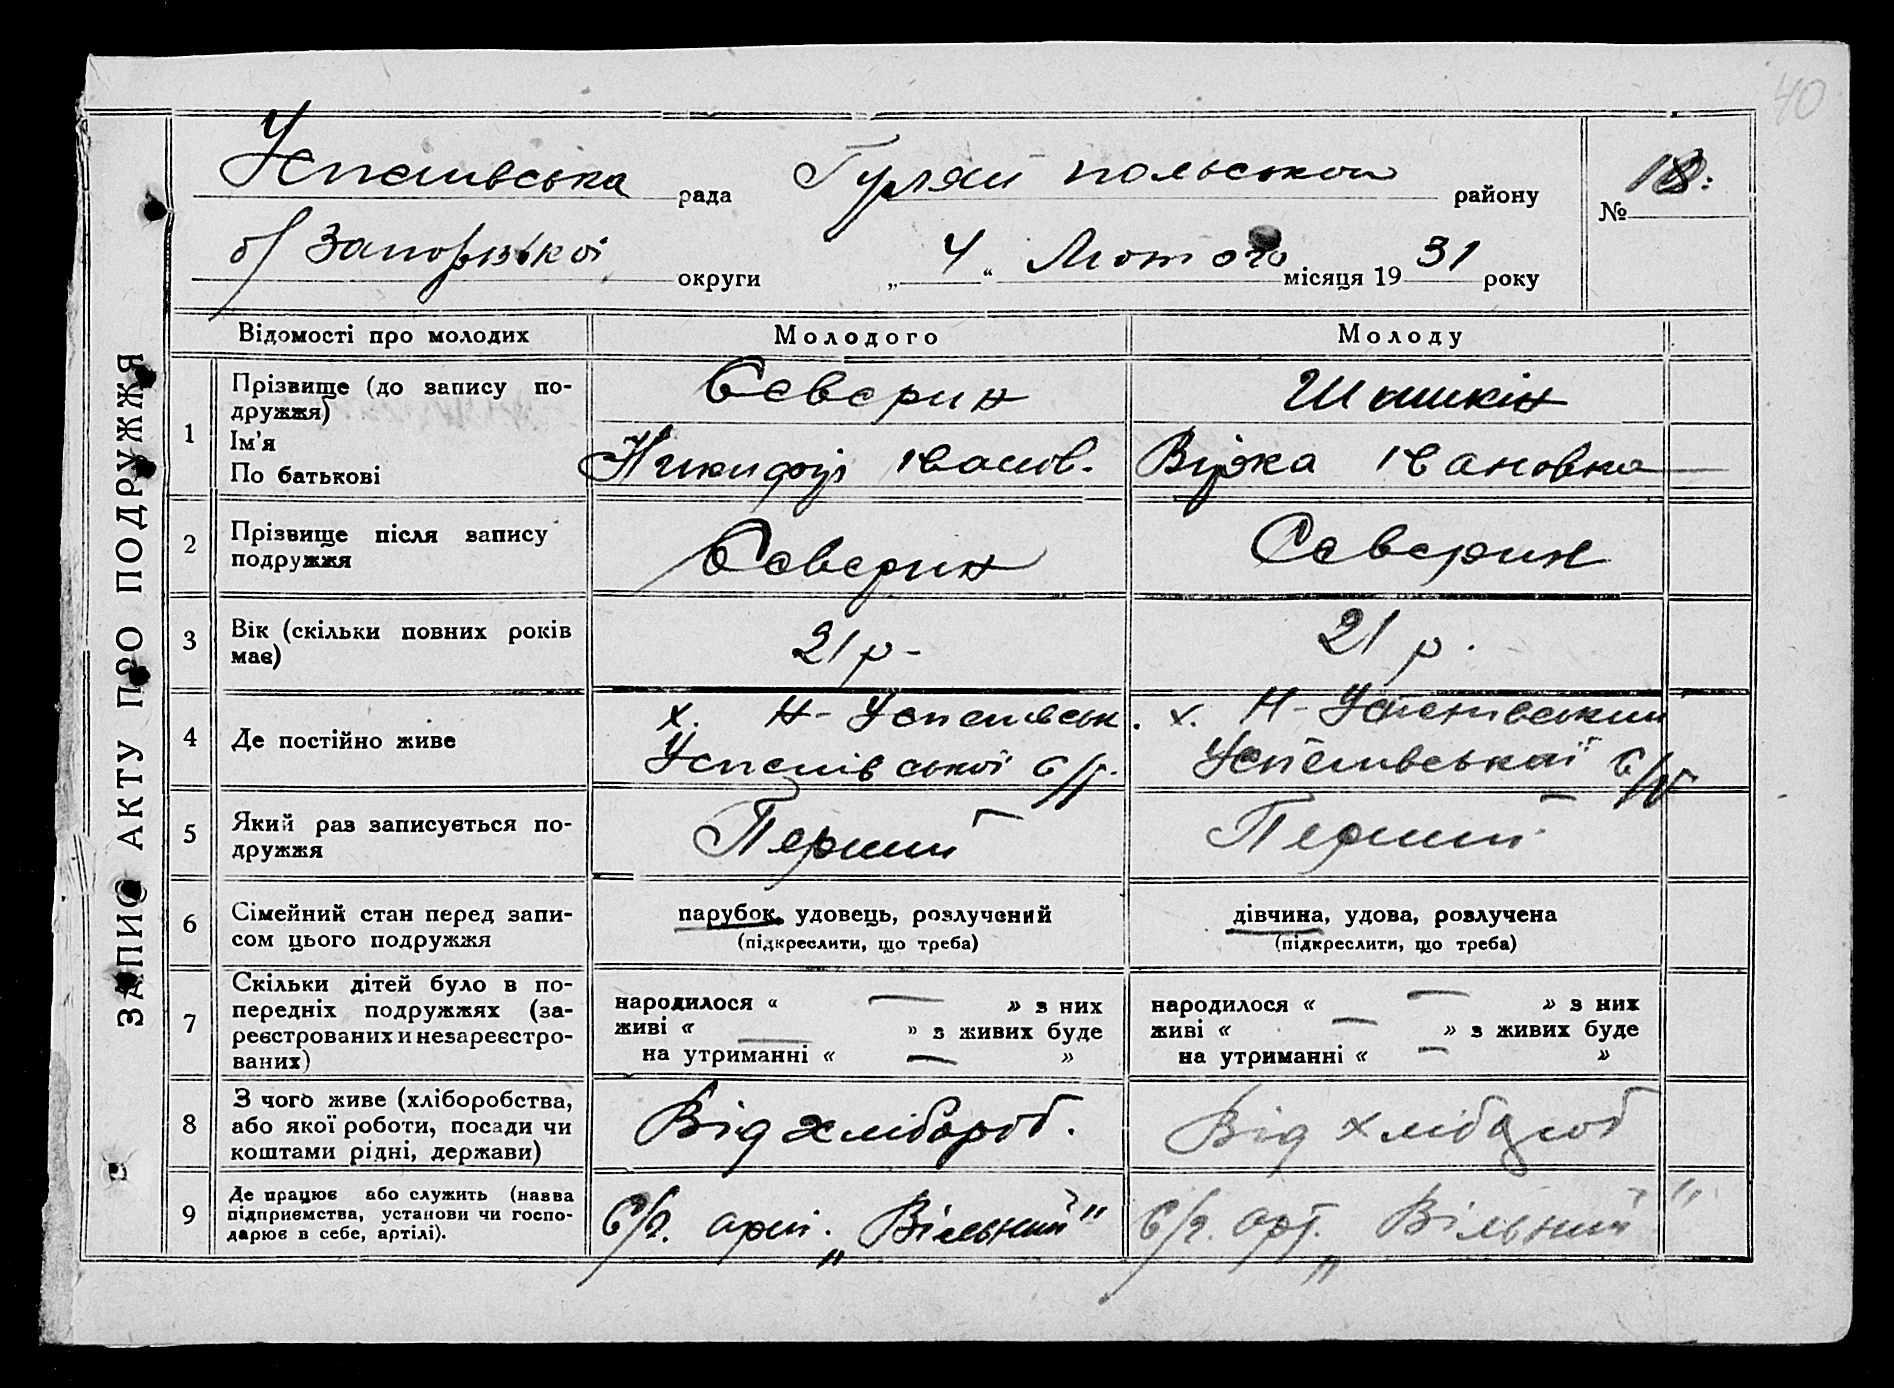 40
Успенівська рада Гуляй польского району № 18:
б/ Запорізької округи „ 4 “ Лютого місяця 19 31 року
ЗАПИС АКТУ ПРО ПОДРУЖЖЯ
Відомості про молодих Молодого Молоду
1 Прізвище (до запису по-
дружжя)
Ім'я
По батькові
Сєвєрин Шишкін
Никифір Іванов. Вірка Івановна
2 Прізвище після запису
подружжя
Сєвєрин Сєвєрин
3 Вік (скільки повних років
має)
21 р - 21 р.
4 Де постійно живе
х. Н-Успенівськ. х. Н-Успенівський
Успенівської с/р. Успенівської с/р
5 Який раз записується по-
дружжя
Перший Перший
6 Сімейний стан перед запи-
сом цього подружжя
парубок, удовець, розлучений дівчина, удова, розлучена
(підкреслити, що треба) (підкреслити, що треба)
7 Скільки дітей було в по-
передніх подружжях (за-
реєстрованих и незареєстро-
ваних)
народилося « — » з них народилося « — » з них
живі « — » з живих буде живі « — » з живих буде
на утриманні « — » на утриманні « — »
8 З чого живе (хліборобства,
або якої роботи, посади чи
коштами рідні, держави)
Від хлібороб. Від хлібороб
9 Де працює або служить (назва
підприємства, установи чи госпо-
дарює в себе, артілі).
С/г. арт. „Вільний" С/г. арт. „Вільний"